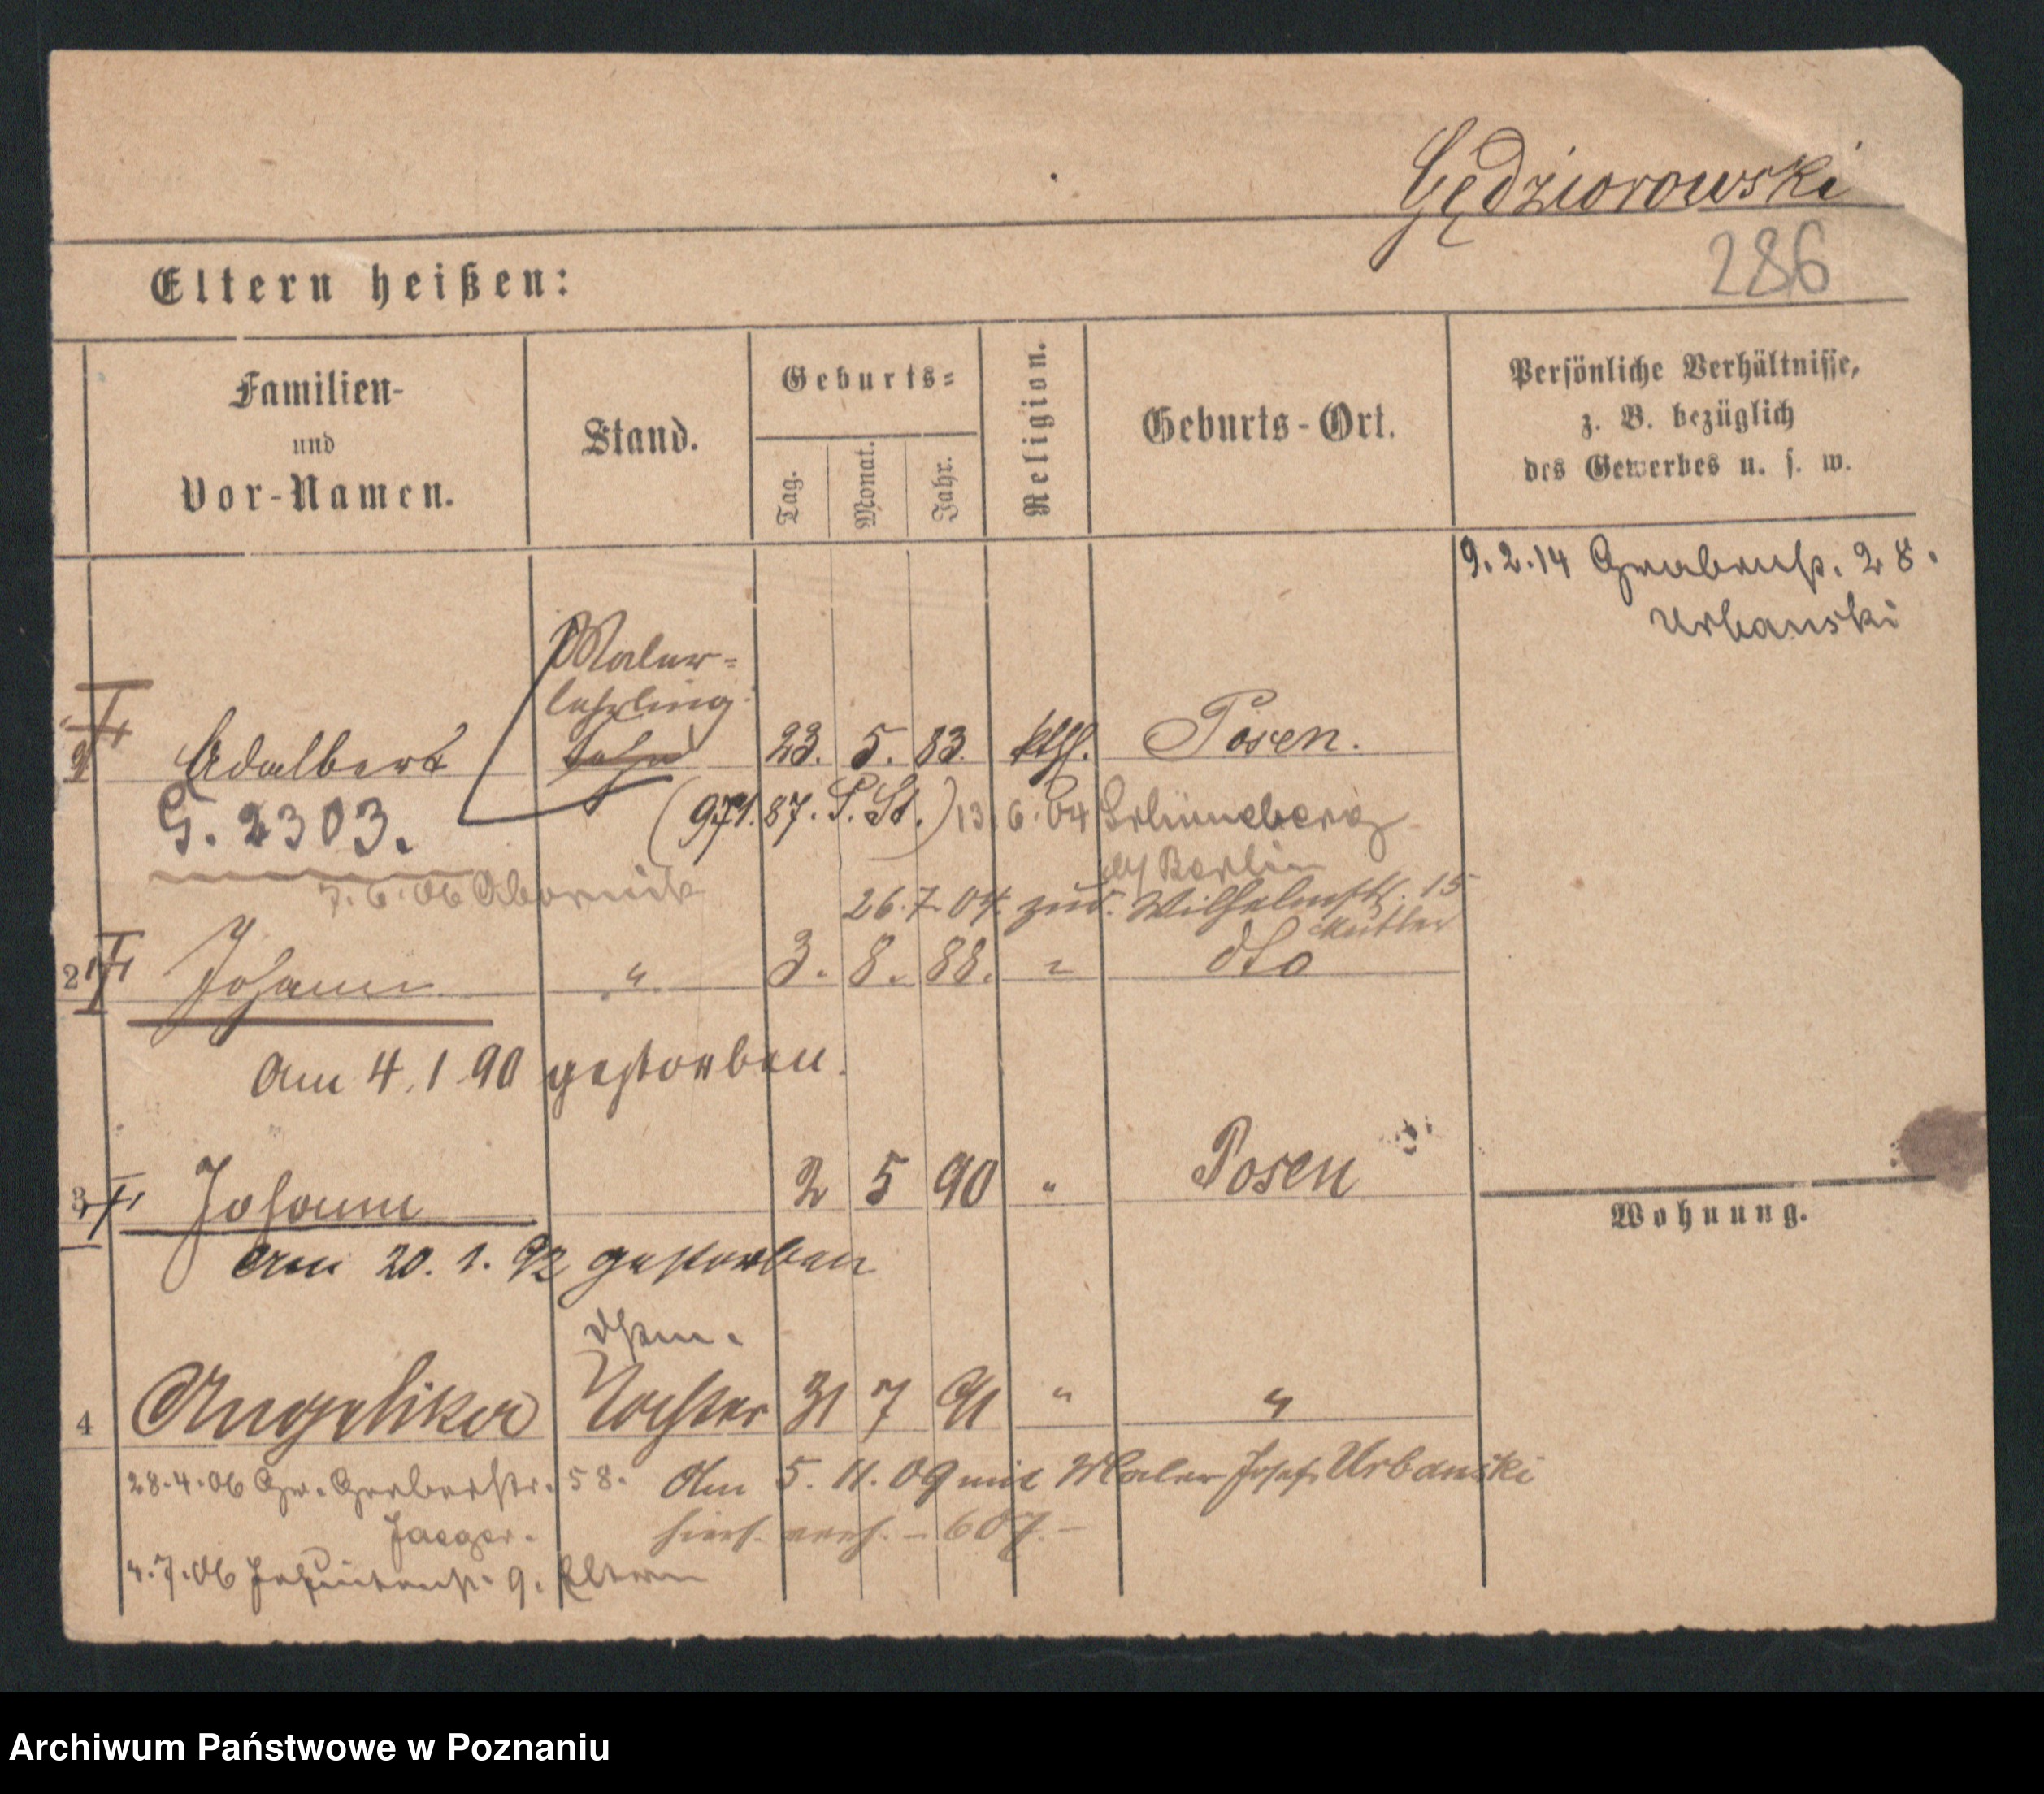 Gędziorowski
286
Eltern heißen:
Familien-
und
Vor-Namen.
Stand.
Geburts-
Tag.
Monat.
Jahr.
Religion.
Geburts-Ort.
Persönliche Verhältnisse,
z. B. bezüglich
des Gewerbes u. s. w.
9.2.14 Grabenstr. 28.
Urbanski
Maler-
lehrling
1 Adalbert Sohn 23. 5. 83. kth. Posen.
G. 2303. (971.87. P. St.) 13.6.04 Schöneberg
b/ Berlin
7.6.06 Obornik 26.7.04. zur. Wilhelmstr. 15
Mutter
2 Johann " 3. 8. 88. " dto
Am 4.1.90 gestorben.
3 Johann 2 5 90 " Posen
Wohnung.
Am 20. 1. 92 gestorben
4 Angelika Tochter 31 7 91 " "
28.4.06 Gr. Gerberstr. 58. Am 5. 11. 09 mit Maler Josef Urbanski
Jaeger. hers. verh. - 607. -
4.7.06 Jesuitenstr. 9. Eltern
Archiwum Państwowe w Poznaniu